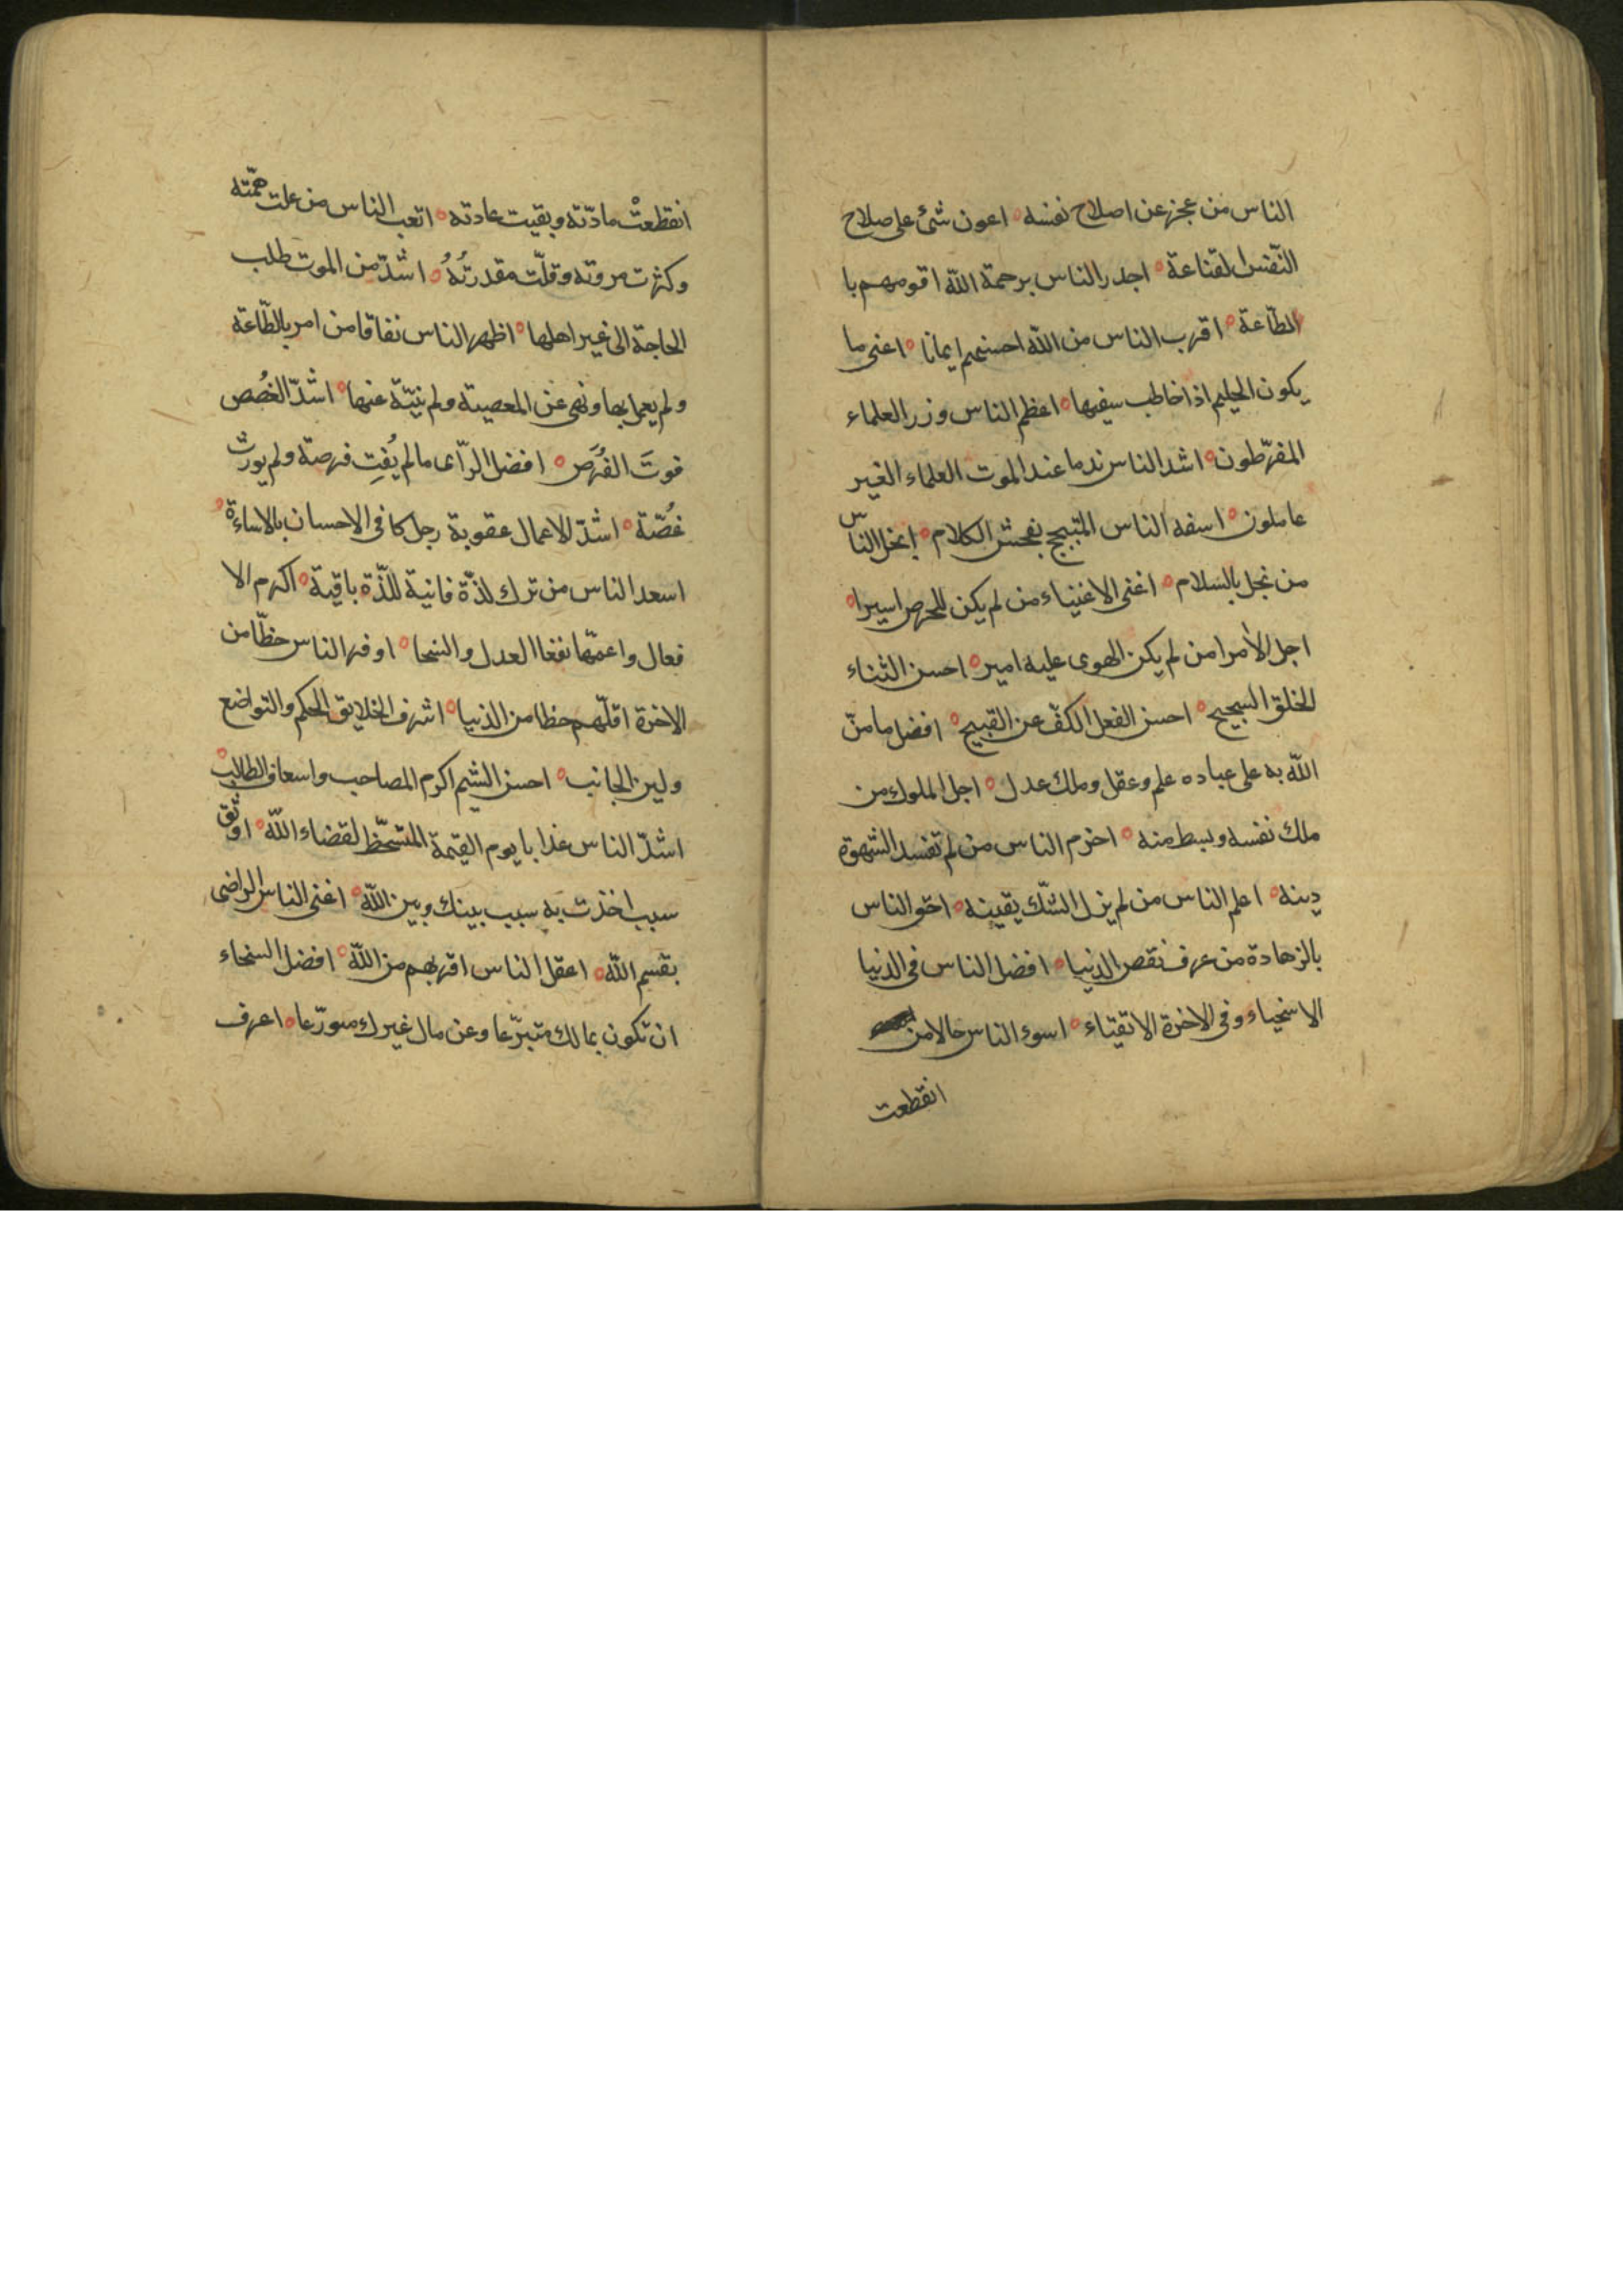 الناس من عجز عن اصلاح نفسه ۰ اعون شئ على صلاح
النّفس القناعة ۰ اجدر الناس برحمة الله اقومهم با
الطّاعة ۰ اقرب الناس من الله احسنهم ايمانا ۰ اغنى ما
يكون الحليم اذا خاطب سفيها ۰ اعظم الناس وزر العلماء
المفرّطون ۰ اشد الناس ندما عند الموت العلماء الغير
عاملون ۰ اسفه الناس المتبجح بفحش الكلام ۰ ابخل الناس
من بخل بالسلام ۰ اغنى الاغنياء من لم يكن للحرص اسيرا ۰
اجل الأمرا من لم يكن الهوى عليه امير ۰ احسن الثناء
الخلق السجيح ۰ احسن الفعل الكفّ عن القبيح ۰ افضل ما منّ
الله به على عباده علم وعقل وملك عدل ۰ اجل الملوك من
ملك نفسه وبسط منه ۰ احزم الناس من لم تفسد الشهوة
دينه ۰ اعلم الناس من لم يزل الشّك يقينه ۰ احق الناس
بالزهادة من عرف نقص الدنيا ۰ افضل الناس فى الدنيا
الاسخياء وفى الاخرة الاتقياء ۰ اسوء الناس حالا من
انقطعت
انقطعتْ مادّته وبقيت عادته ۰ اتعب الناس من علت همّته
وكثرت مروته وقلّت مقدرتُهُ ۰ اشدّ من الموت طلب
الحاجة الى غير اهلها ۰ اظهر الناس نفاقا من امر بالطّاعة
ولم يعمل بها ونهى عن المعصية ولم ينتّه عنها ۰ اشدّ الغُصص
فوتَ الفُرَص ۰ افضل الرّاى ما لم يُفتِ فرصة ولم يورث
غُصّة ۰ اشدّ الاعمال عقوبة رجل كافى الاحسان بالاساءة ۰
اسعد الناس من ترك لذّة فانية للذّة باقية ۰ اكرم الا
فعال واعمّها نفعا العدل والسخا ۰ اوفر الناس حظّا من
الاخرة اقلّهم حظا من الدنيا ۰ اشرف الخلايق الحكم والتواضع
ولين الجانب ۰ احسن الشيم اكرم المصاحب واسعاف الطالب ۰
اشدّ الناس عذابا يوم القيمة المتسخّط لقضاء الله ۰ اوثق
سبب اخذت به سبب بينك وبين الله ۰ اغنى الناس الراضى
بقسم الله ۰ اعقل الناس اقربهم من الله ۰ افضل السخاء
ان تكون بمالك متبرّعا وعن مال غيرك متورّعا ۰ اعرف